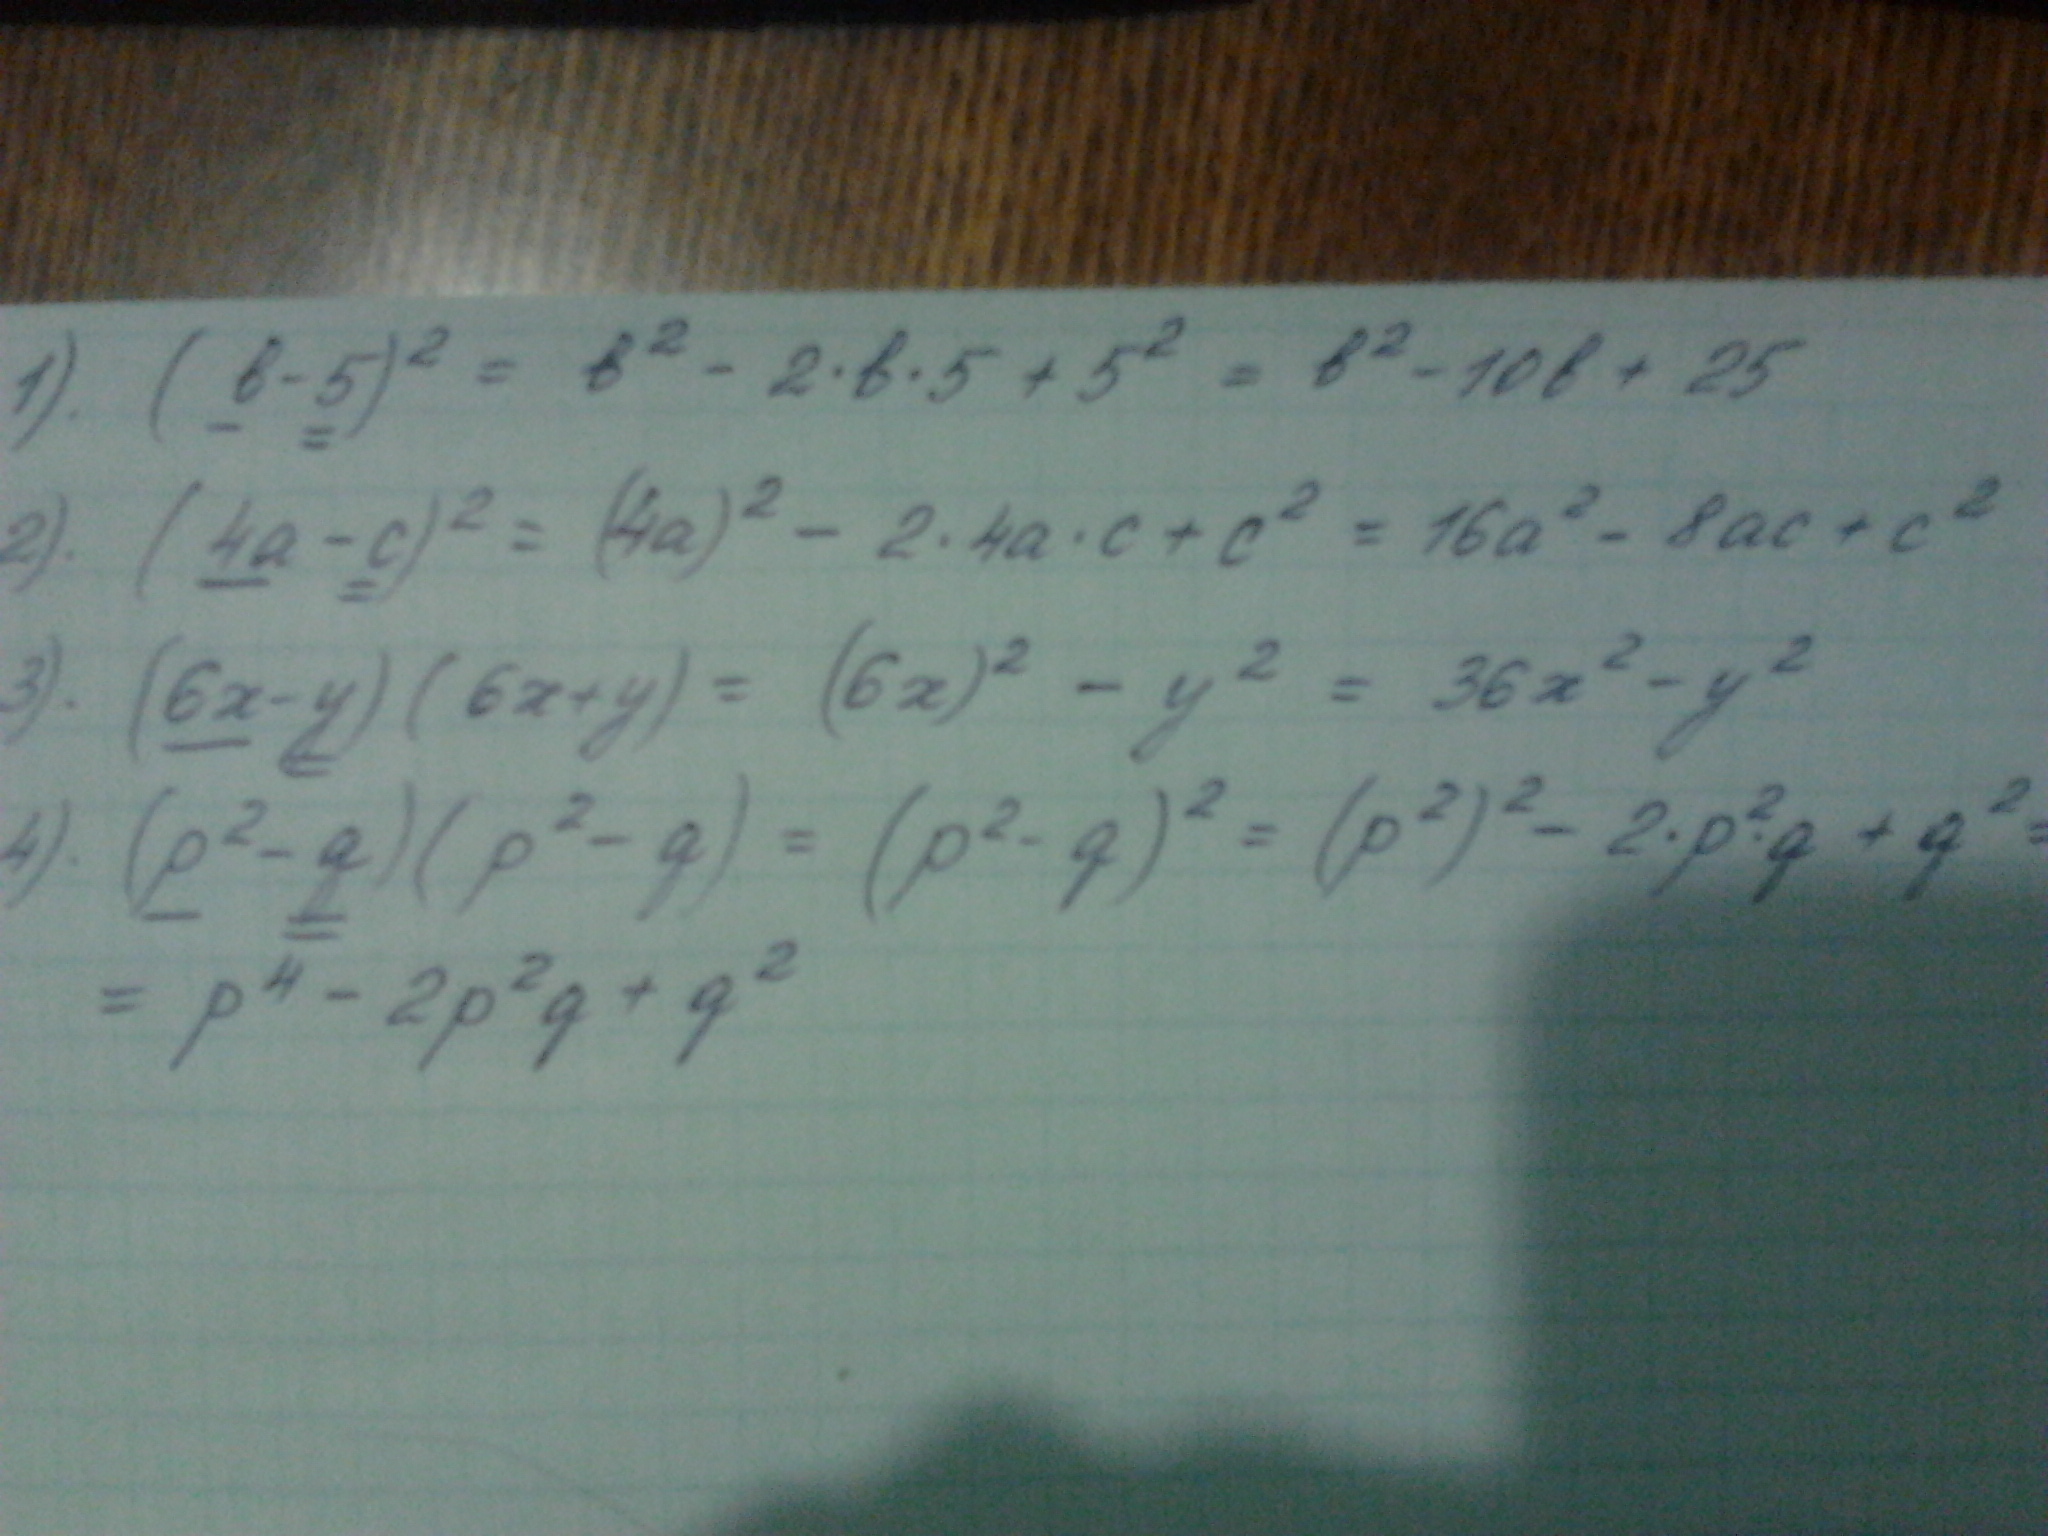 1). (b-5)² = b² - 2·b·5 + 5² = b² - 10b + 25
2). (4a - c)² = (4a)² - 2·4a·c + c² = 16a² - 8ac + c²
3). (6x-y)(6x+y) = (6x)² - y² = 36x² - y²
4). (p² - q)(p² - q) = (p² - q)² = (p²)² - 2·p²·q + q² =
= p⁴ - 2p²q + q²